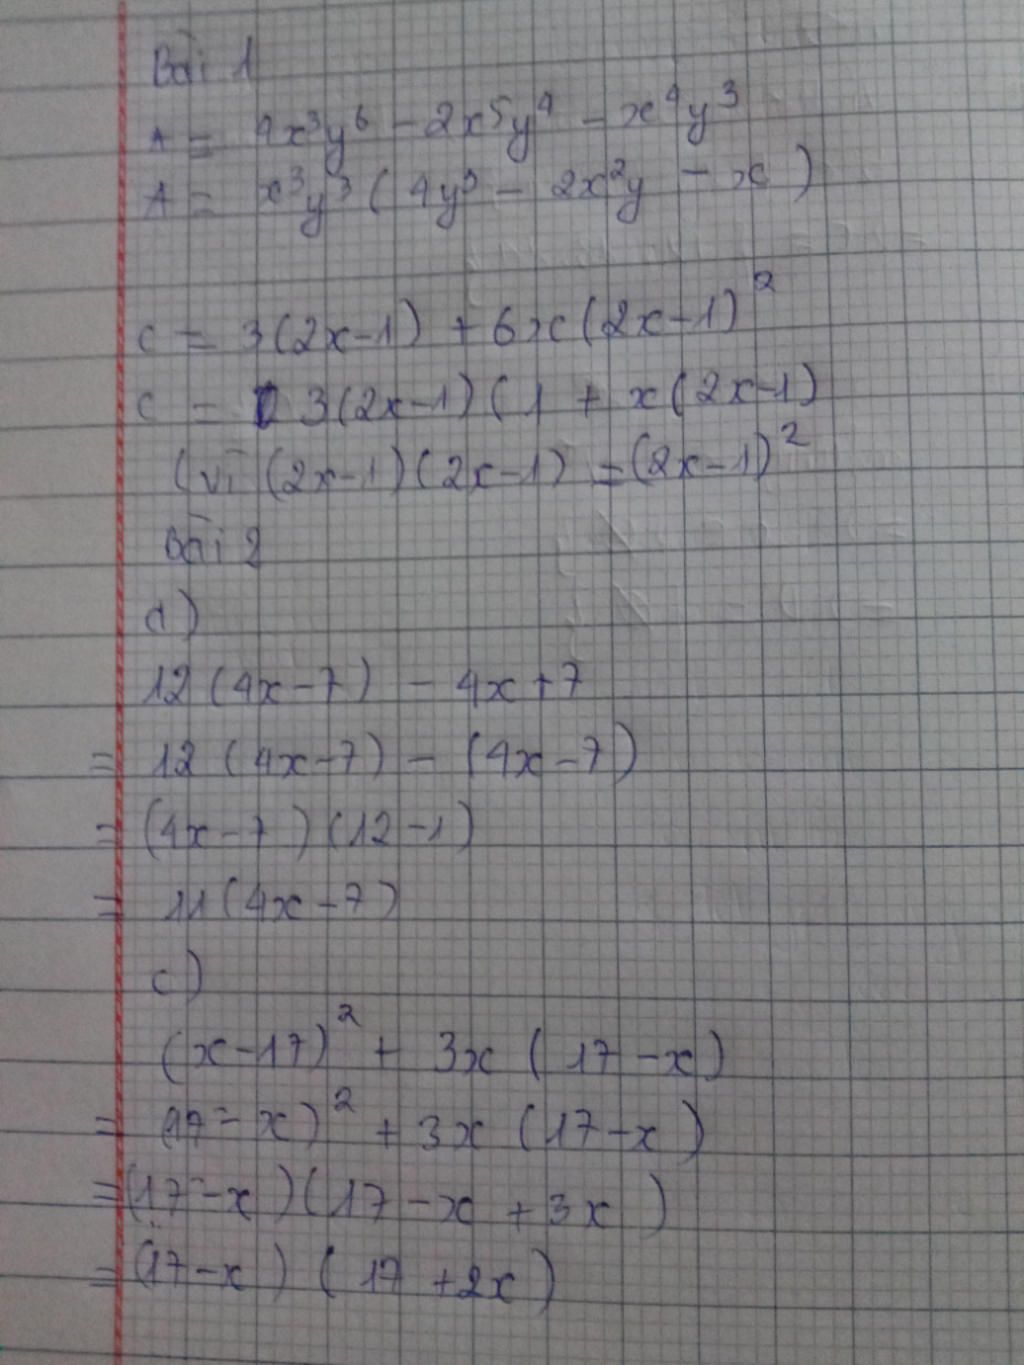 Bài 1
A = 4x³y⁶ - 2x⁵y⁴ - x⁴y³
A = x³y³ ( 4y³ - 2x²y - x )
C = 3(2x-1) + 6x(2x-1)²
C = 3(2x-1) ( 1 + x(2x-1)
(vì (2x-1)(2x-1) = (2x-1)²
Bài 2
a)
12 (4x-7) - 4x+7
= 12 (4x-7) - (4x-7)
= (4x-7)(12-1)
= 11(4x-7)
c)
(x-17)² + 3x ( 17 -x)
= (17-x)² + 3x (17-x)
= (17-x)(17-x + 3x )
= (17-x) ( 17 +2x )